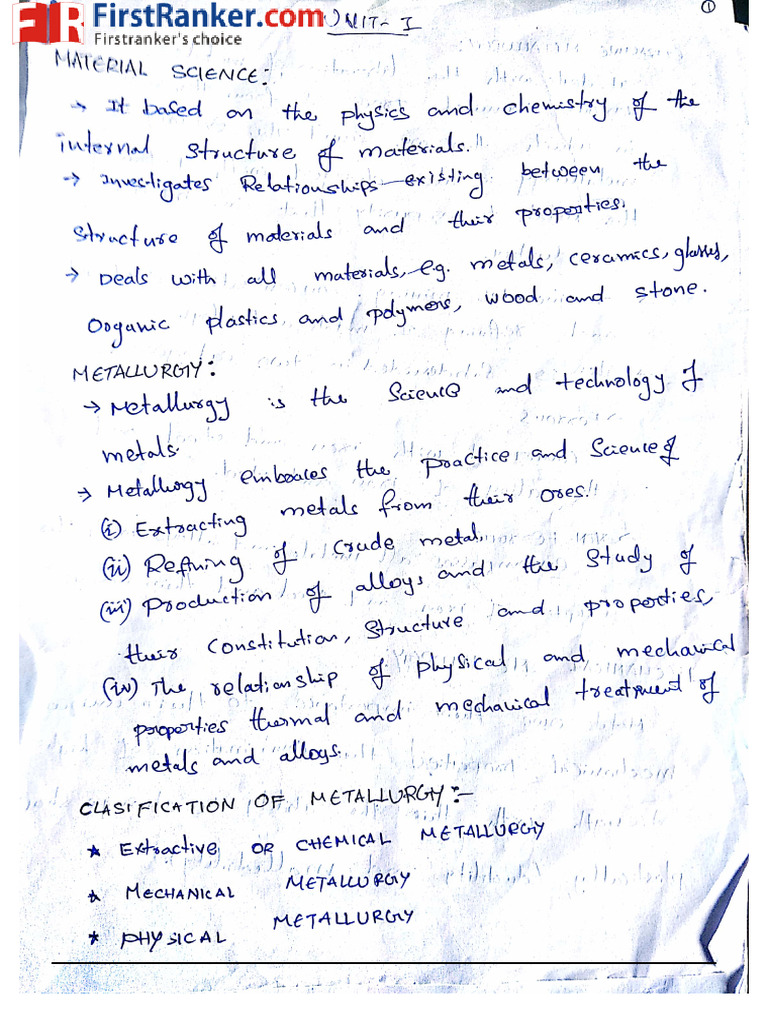 FirstRanker.com
Firstranker's choice
UNIT- I
1
MATERIAL SCIENCE:
→ It based on the physics and chemistry of the
internal structure of materials.
→ Investigates Relationships existing between the
structure of materials and their properties.
→ Deals with all materials, e.g. metals, ceramics, glasses,
Organic plastics and polymers, wood and stone.
METALLURGY:
→ Metallurgy is the Science and technology of
metals.
→ Metallurgy embraces the practice and Science of
(i) Extracting metals from their ores.
(ii) Refining of crude metal.
(iii) Production of alloys and the study of
their constitution, structure and properties,
(iv) The relationship of physical and mechanical
properties thermal and mechanical treatment of
metals and alloys.
CLASIFICATION OF METALLURGY:-
* Extractive OR CHEMICAL METALLURGY
* MECHANICAL METALLURGY
* PHYSICAL METALLURGY